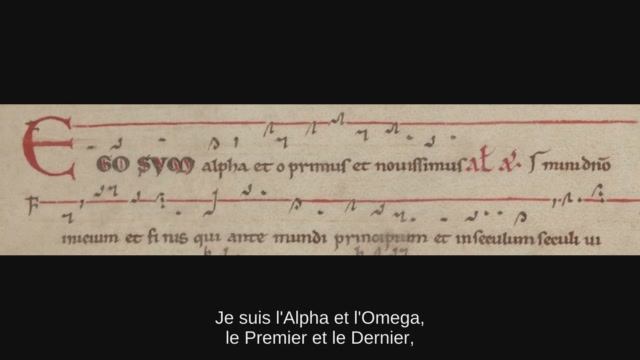 EGO SVM alpha et o primus et nouissimus
inicium et finis qui ante mundi principium et in seculum seculi ui
Je suis l'Alpha et l'Omega,
le Premier et le Dernier,